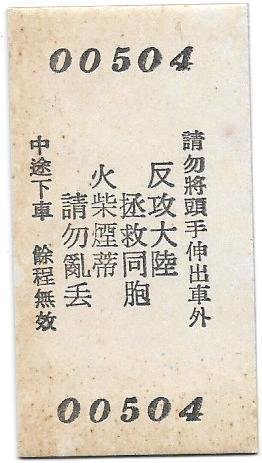 00504
請勿將頭手伸出車外
反攻大陸
拯救同胞
火柴煙蒂
請勿亂丟
中途下車 餘程無效
00504